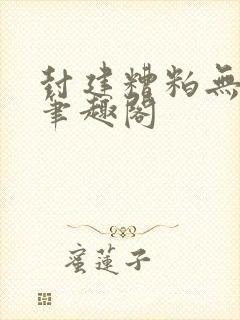 封建糟粕無
筆趣閣
蜜蓮子